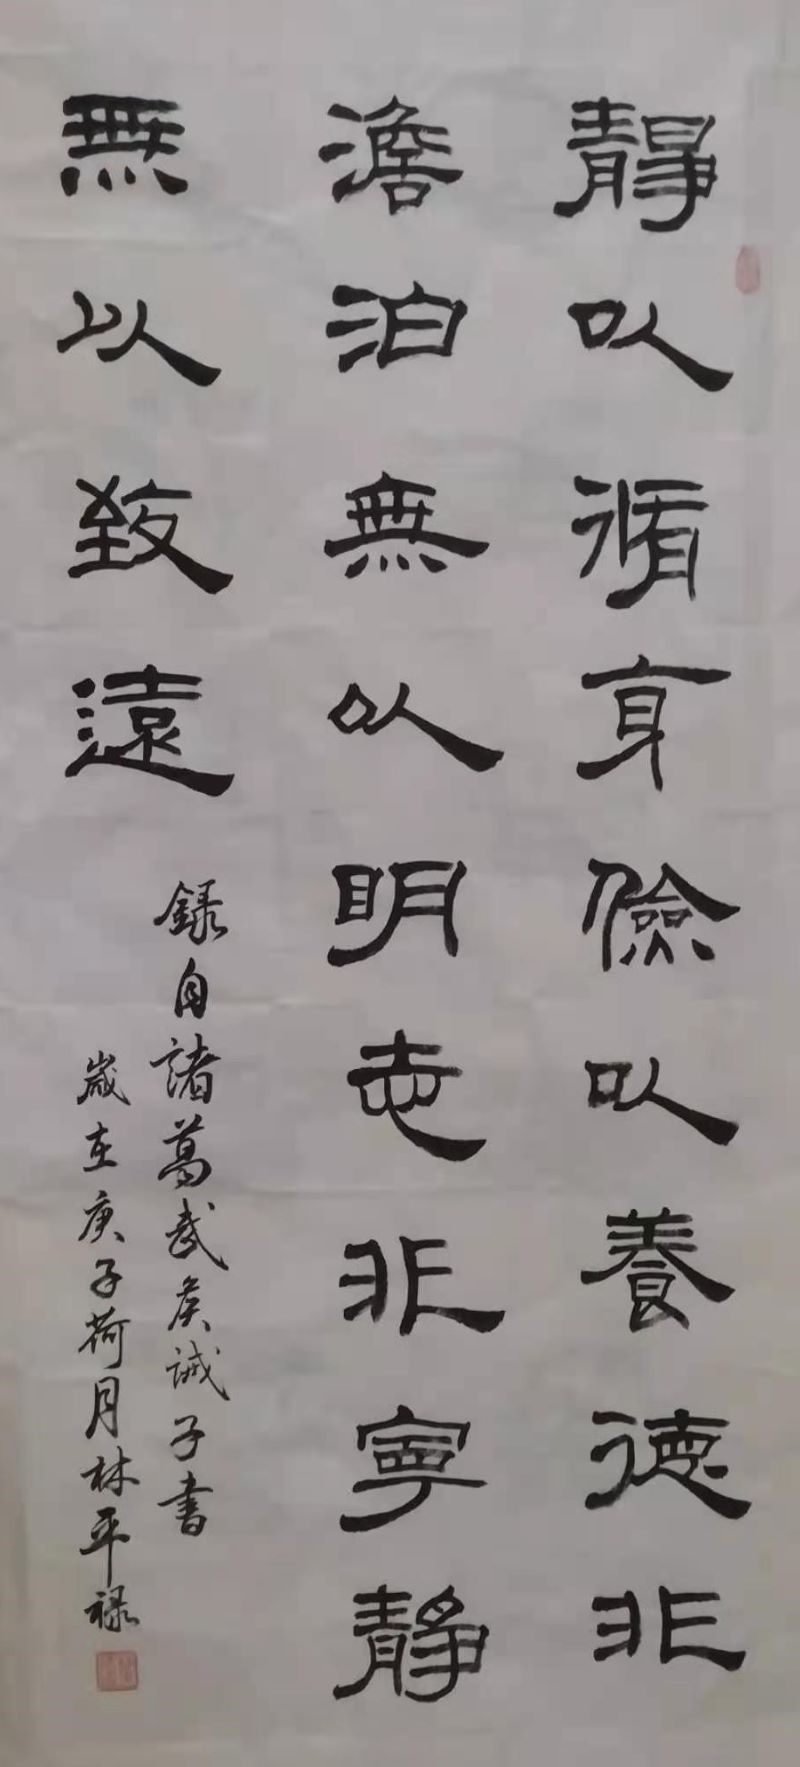 靜以脩身儉以養德非
澹泊無以明志非寧靜
無以致遠
錄自諸葛武侯誡子書
歲在庚子荷月林平祿